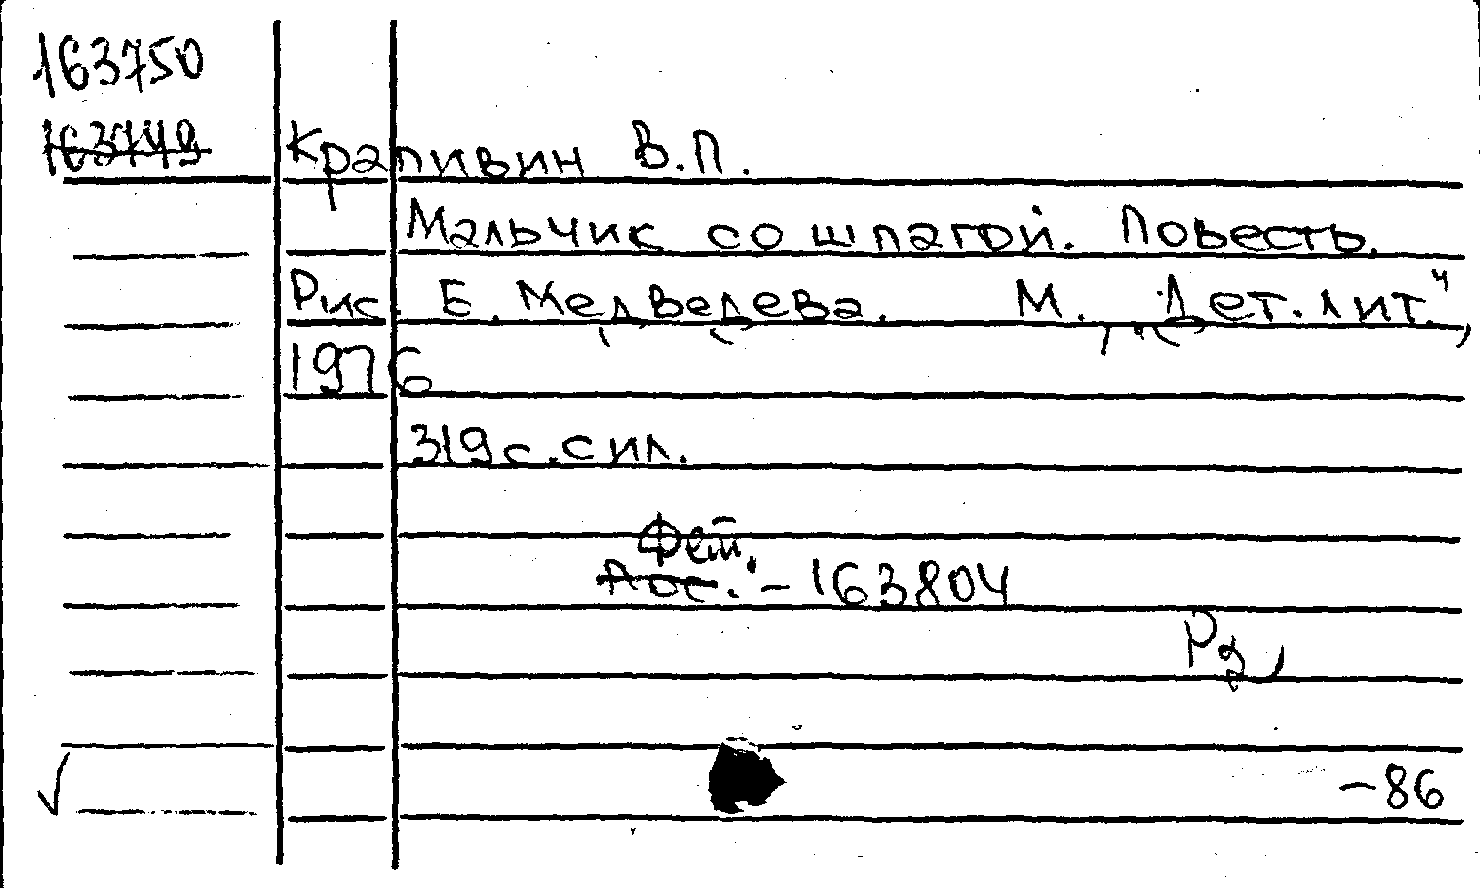 163750
163749
Крапивин В.П.
Мальчик со шпагой. Повесть.
Рис. Е. Медведева. М., „Дет. лит.",
1976
319 с. с ил.
Фет.
Або. - 163804
Р2
-86